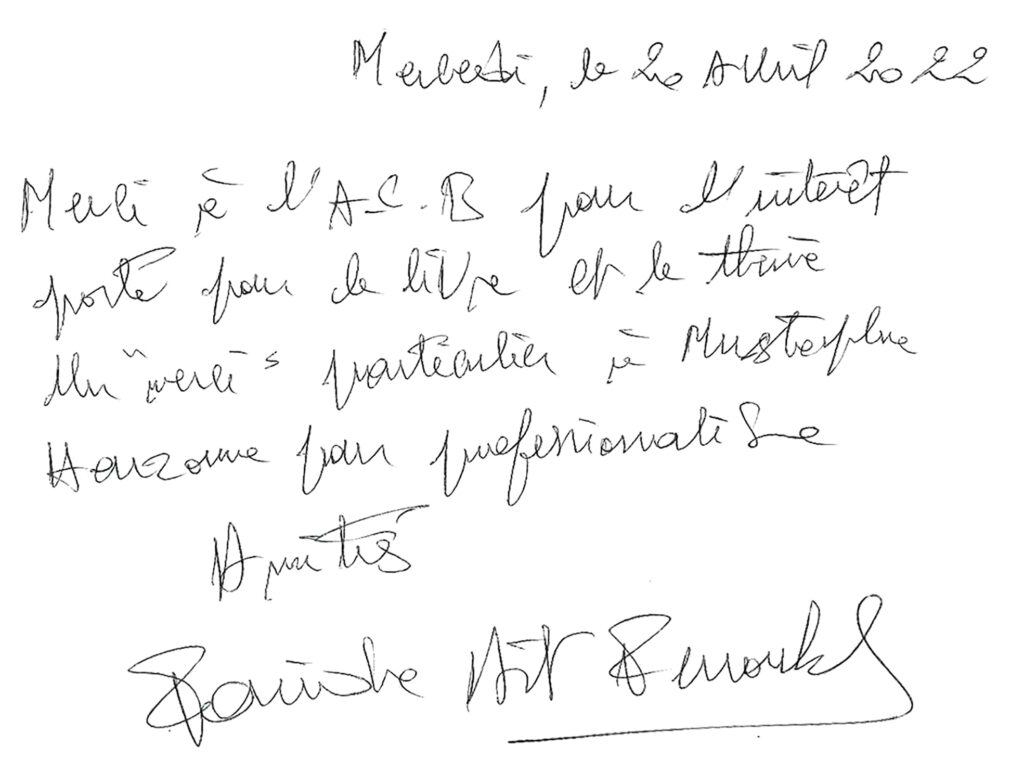 Mercredi, le 20 Avril 2022
Merci à l'A.C.B pour l'intérêt
porté pour le livre et le thème
Un "merci" particulier à Mustapha
pour professionnalisme
Amitiés
Aït